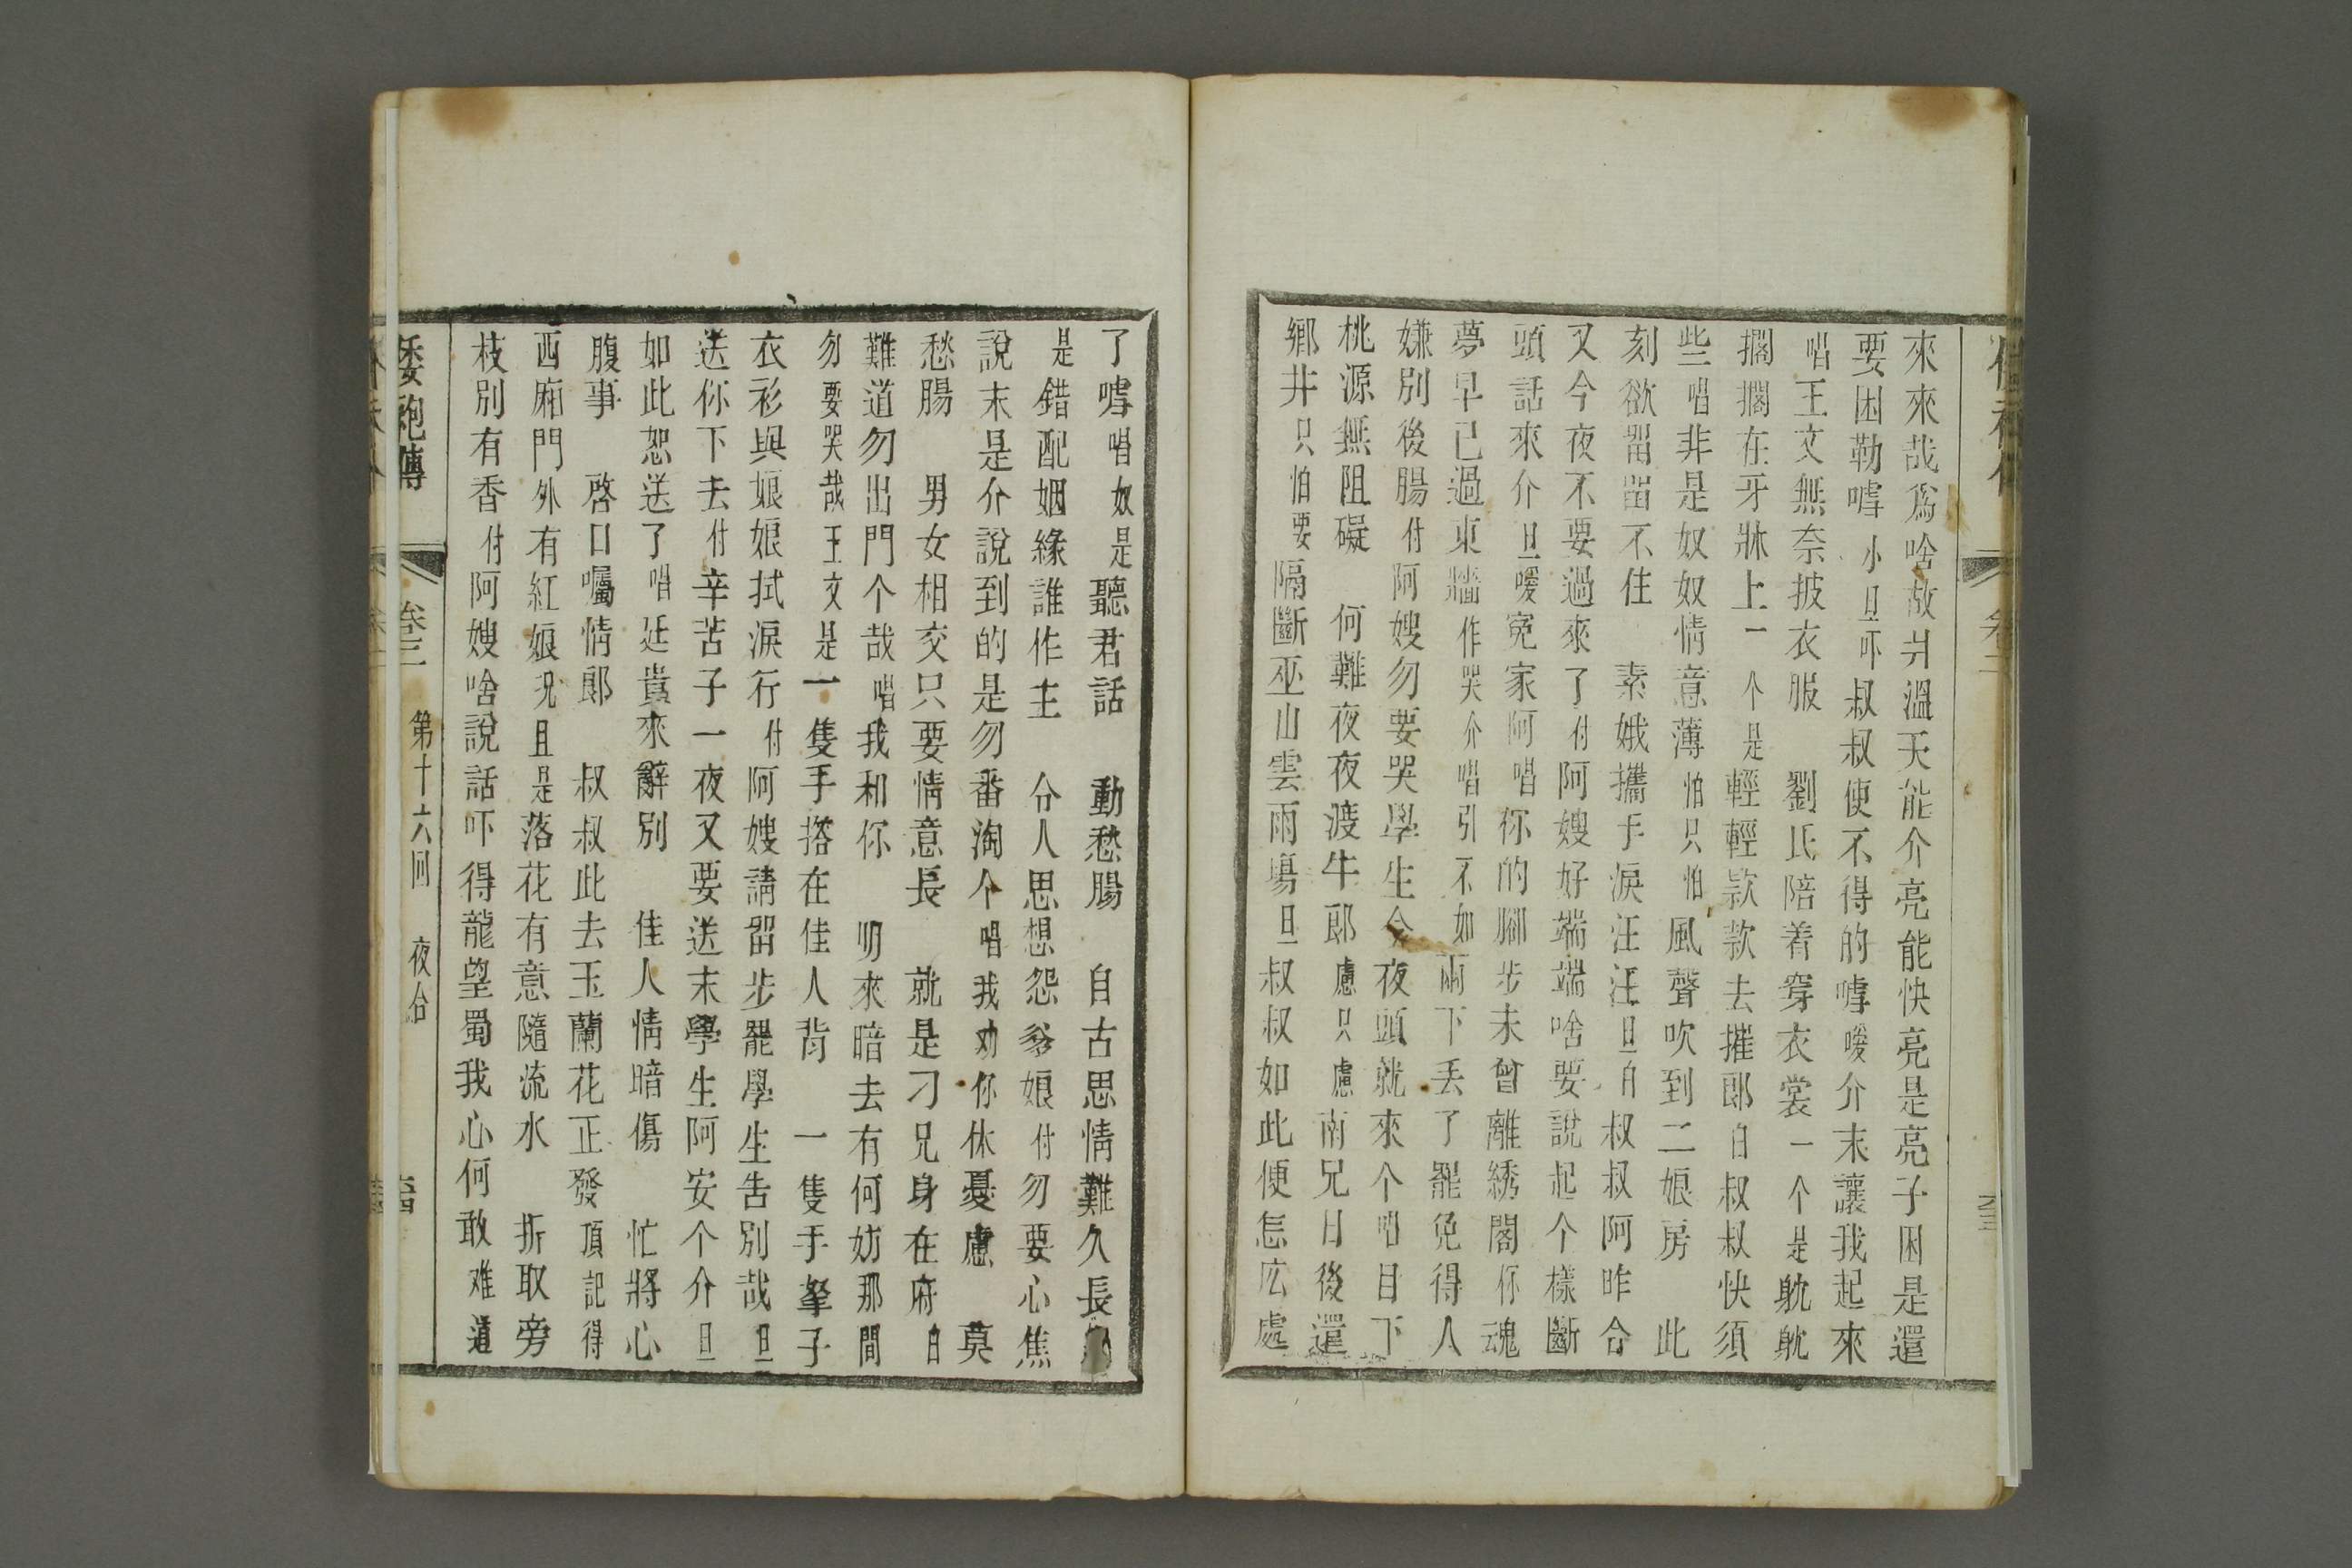 來來哉爲啥故昇溫天能介亮能快亮是亮子困是還
要困勒嘑小旦吓叔叔使不得的嘑嗳介末讓我起來
唱王文無奈披衣服 劉氏陪着穿衣裳一个是躭躭
擱擱在牙牀上一个是輕輕款款去摧郎白叔叔快須
些唱非是奴奴情意薄怕只怕風聲吹到二娘房 此
刻欲畱畱不住 素娥攜手淚汪汪旦白叔叔阿昨合
又今夜不要過來了付阿嫂好端端啥要說起个樣斷
頭話來介旦嗳冤家阿唱你的腳步未曾離綉閣你魂
夢早已過東牆作哭介唱引不如兩下丢了罷免得人
嫌別後腸付阿嫂勿要哭學生今夜頭就來个唱目下
桃源無阻礙 何難夜夜渡牛郎慮只慮南兄日後還
鄉井只怕要隔斷巫山雲雨塲旦叔叔如此便怎広處
了嘑唱奴是聽君話 動愁腸 自古思情難久長
是錯配姻緣誰作主 今人思想怨爹娘付勿要心焦
說末是介說到的是勿番淘个唱我劝你休憂慮 莫
愁腸 男女相交只要情意長 就是刁兄身在府白
難道勿出門个哉唱我和你 明來暗去有何妨那間
勿要哭哉王文是一隻手搭在佳人背 一隻手拏子
衣衫與娘娘拭淚行付阿嫂請畱步罷學生告別哉旦
送你下去付辛苦子一夜又要送末學生阿安个介旦
如此恕送了唱廷貴來辭別 佳人情暗傷 忙將心
腹事 啓口囑情郎 叔叔此去玉蘭花正發頂記得
西廂門外有紅娘况且是落花有意隨流水 折取旁
枝別有香付阿嫂啥說話吓得龍望蜀我心何敢难道
倭袍傳 卷三 第十六回 夜合